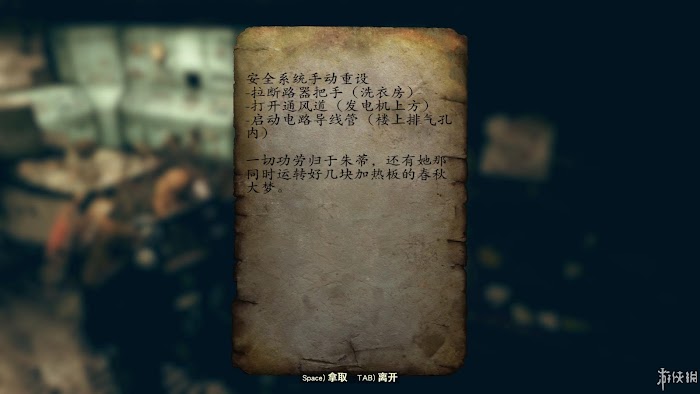 安全系统手动重设
-拉断路器把手（洗衣房）
-打开通风道（发电机上方）
-启动电路导线管（楼上排气孔
内）
一切功劳归于朱蒂，还有她那
同时运转好几块加热板的春秋
大梦。
Space) 拿取 TAB) 离开
游侠网